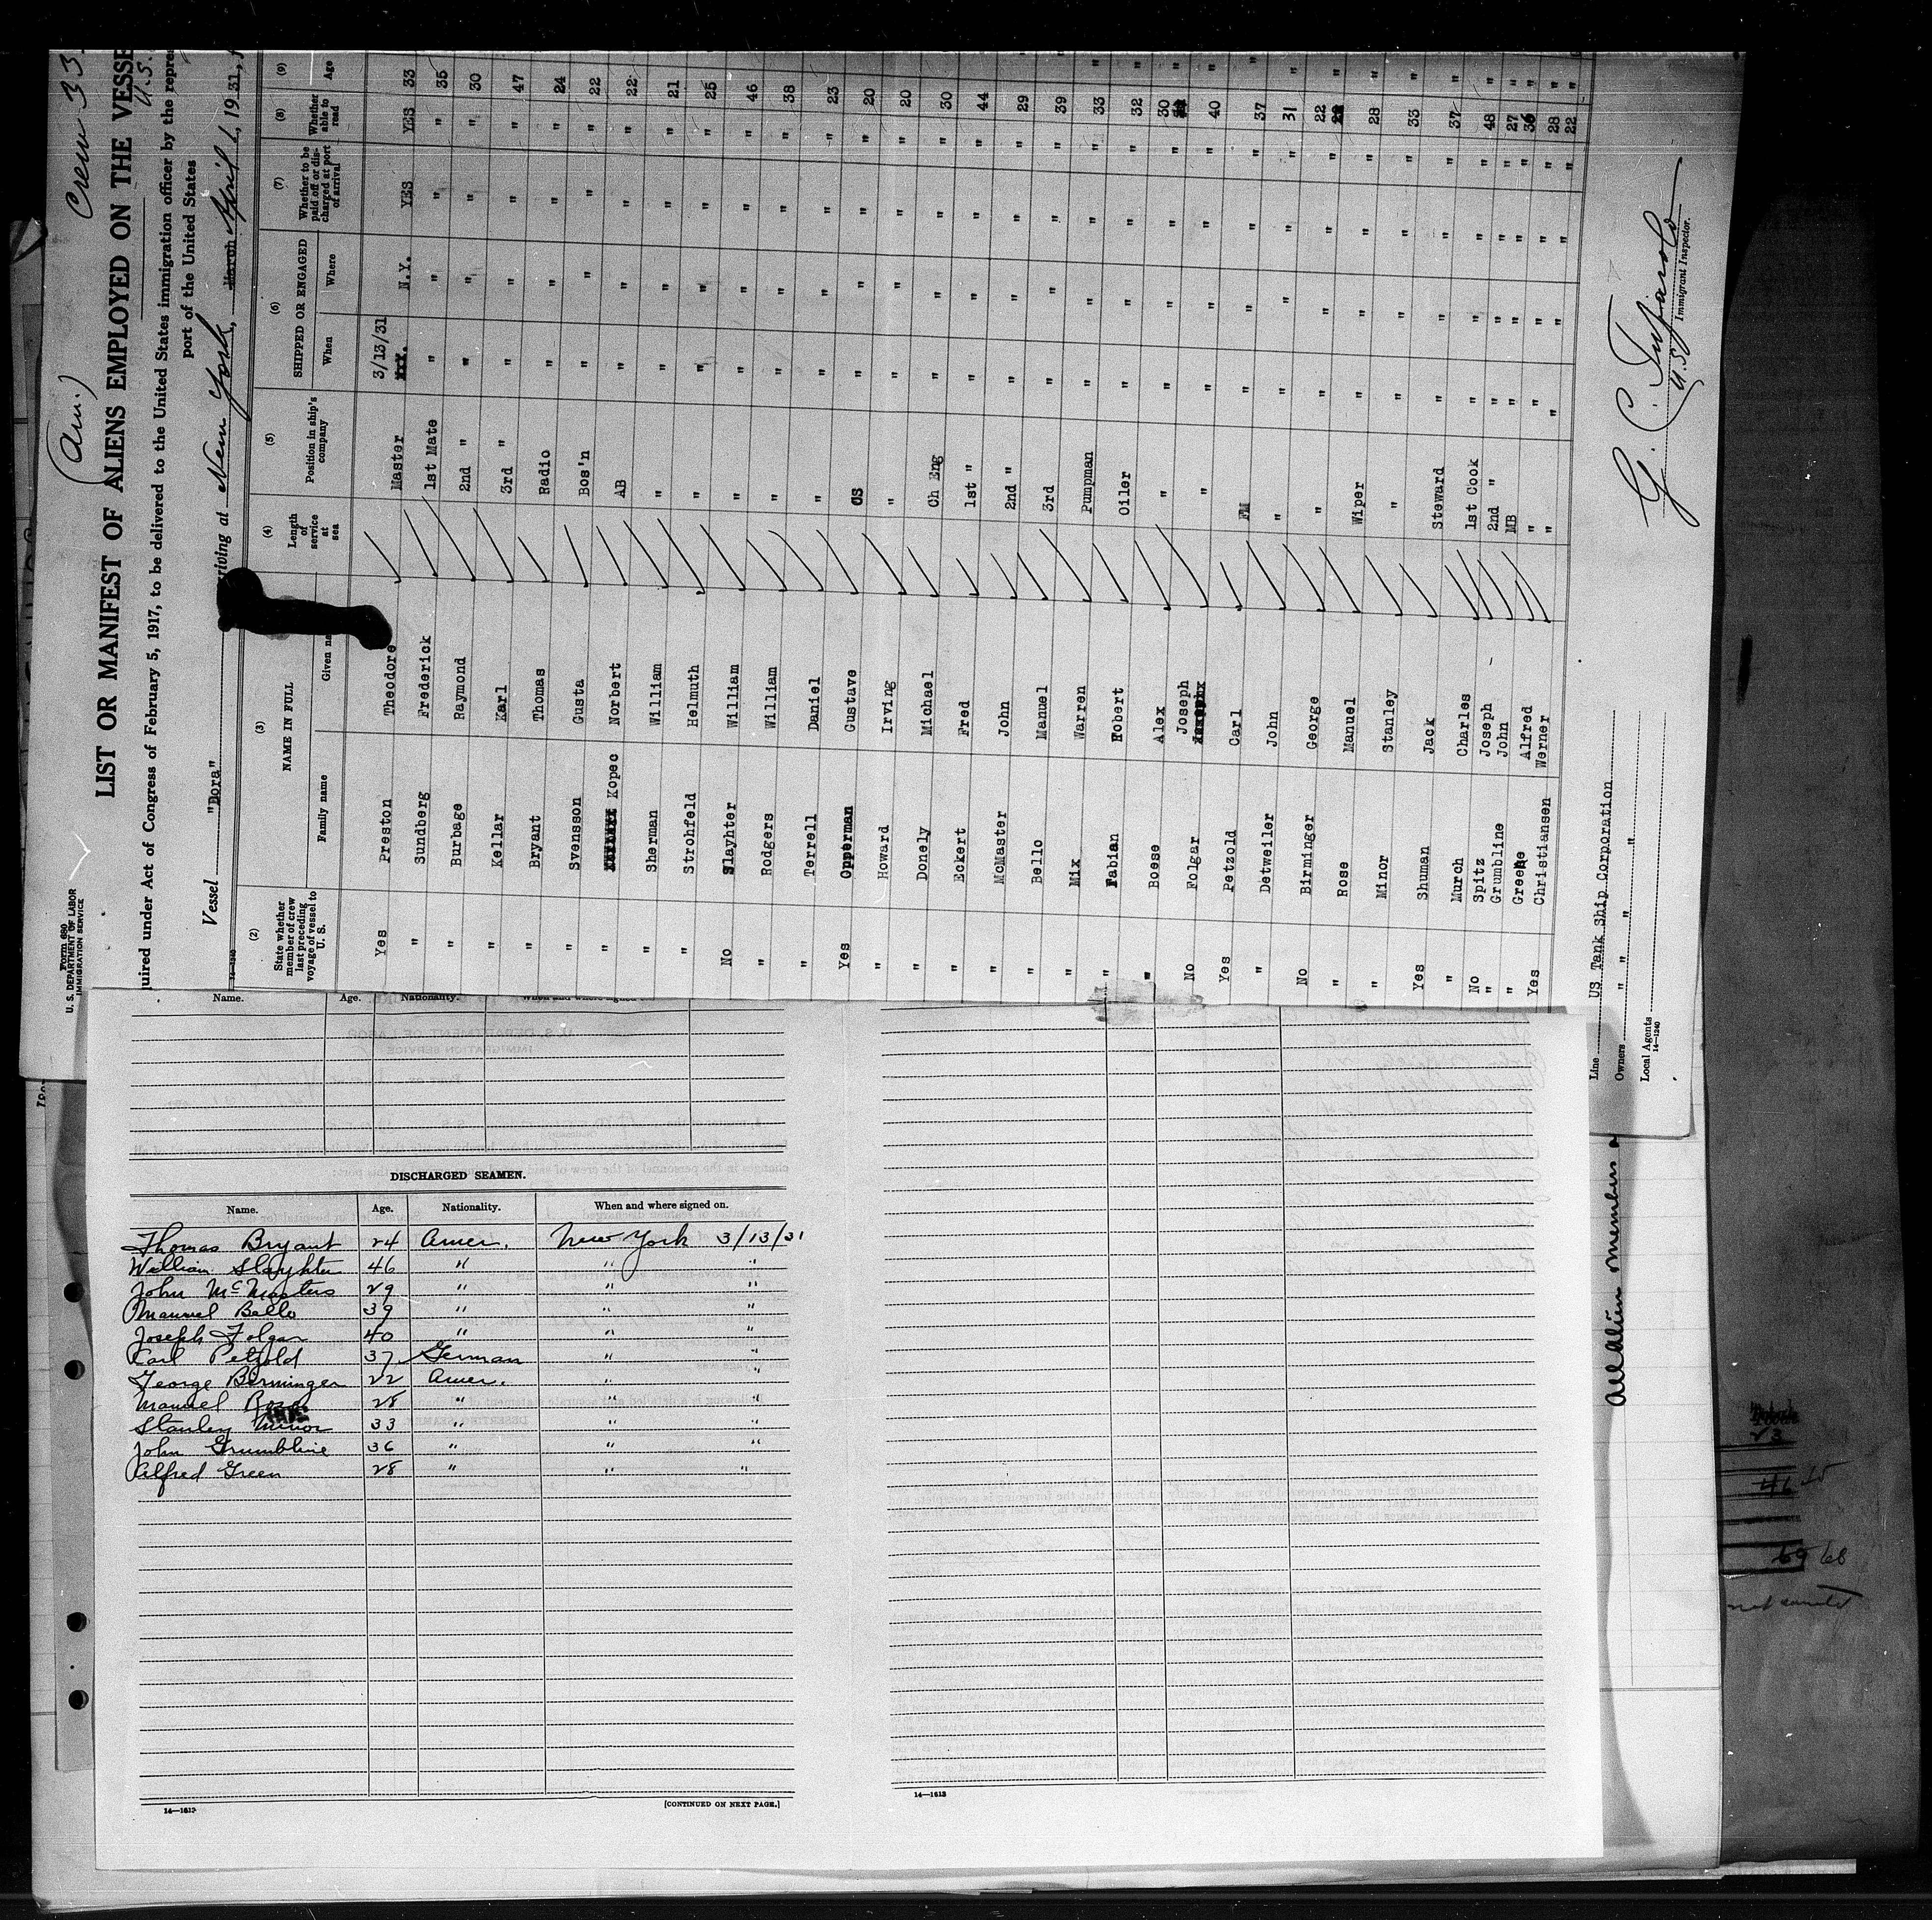 (Am.) Crew 33
Form 680
U. S. DEPARTMENT OF LABOR
IMMIGRATION SERVICE
LIST OR MANIFEST OF ALIENS EMPLOYED ON THE VESSE
U.S.
quired under Act of Congress of February 5, 1917, to be delivered to the United States immigration officer by the repre
port of the United States
Vessel "Dora" rriving at New York, March April 1, 1931,
14—1240
(2) (3) (4) (5) (6) (7) (8) (9)
State whether member of crew last preceding voyage of vessel to U. S. NAME IN FULL Length of service at sea Position in ship's company SHIPPED OR ENGAGED Whether to be paid off or discharged at port of arrival Whether able to read Age
Family name Given na When Where
Yes Preston Theodore Master 3/13/31 N.Y. YES YES 33
" Sundberg Frederick 1st Mate " " " " 35
" Burbage Raymond 2nd " " " " " 30
" Kellar Karl 3rd " " " " " 47
" Bryant Thomas Radio " " " " 24
" Svensson Gusta Bos'n " " " " 22
" Kopec Norbert AB " " " " 22
" Sherman William " " " " " 21
" Strohfeld Helmuth " " " " " 25
No Slayhter William " " " " " 46
" Rodgers William " " " " " 38
" Terrell Daniel " " " " " 23
Yes Opperman Gustave OS " " " " 20
" Howard Irving " " " " " 20
" Donely Michael Ch Eng " " " " 30
" Eckert Fred 1st " " " " " 44
" McMaster John 2nd " " " " " 29
" Bello Manuel 3rd " " " " 39
" Mix Warren Pumpman " " " " 33
" Fabian Robert Oiler " " " " 32
" Boese Alex " " " " " 30
No Folgar Joseph " " " " " 40
Yes Petzold Carl FM " " " " 37
" Detweiler John " " " " " 31
No Birminger George " " " " " 22
" Rose Manuel Wiper " " " " 28
" Minor Stanley " " " " " 33
Yes Shuman Jack Steward " " " " 37
" Murch Charles 1st Cook " " " " 48
No Spitz Joseph 2nd " " " " " 27
" Grumbline John MB " " " " 36
" Greene Alfred " " " " " 28
Yes Christiansen Werner " " " " " 22
Line US Tank Ship Corporation
Owners " " " "
Local Agents
14—1240
U.S. Immigrant Inspector.
Name. Age. Nationality. When and where signed
DISCHARGED SEAMEN.
Name. Age. Nationality. When and where signed on.
Thomas Bryant 24 Amer. New York 3/13/31
William Slayhter 46 " " "
John McMasters 29 " " "
Manuel Bello 39 " " "
Joseph Folgar 40 " " "
Carl Petzold 37 German " "
George Berminger 22 Amer. " "
Manuel Rose 28 " " "
Stanley Minor 33 " " "
John Grumbline 36 " " "
Alfred Green 28 " " "
14—1613
[CONTINUED ON NEXT PAGE.]
14—1613
All Alien members
23
46 15
69 68